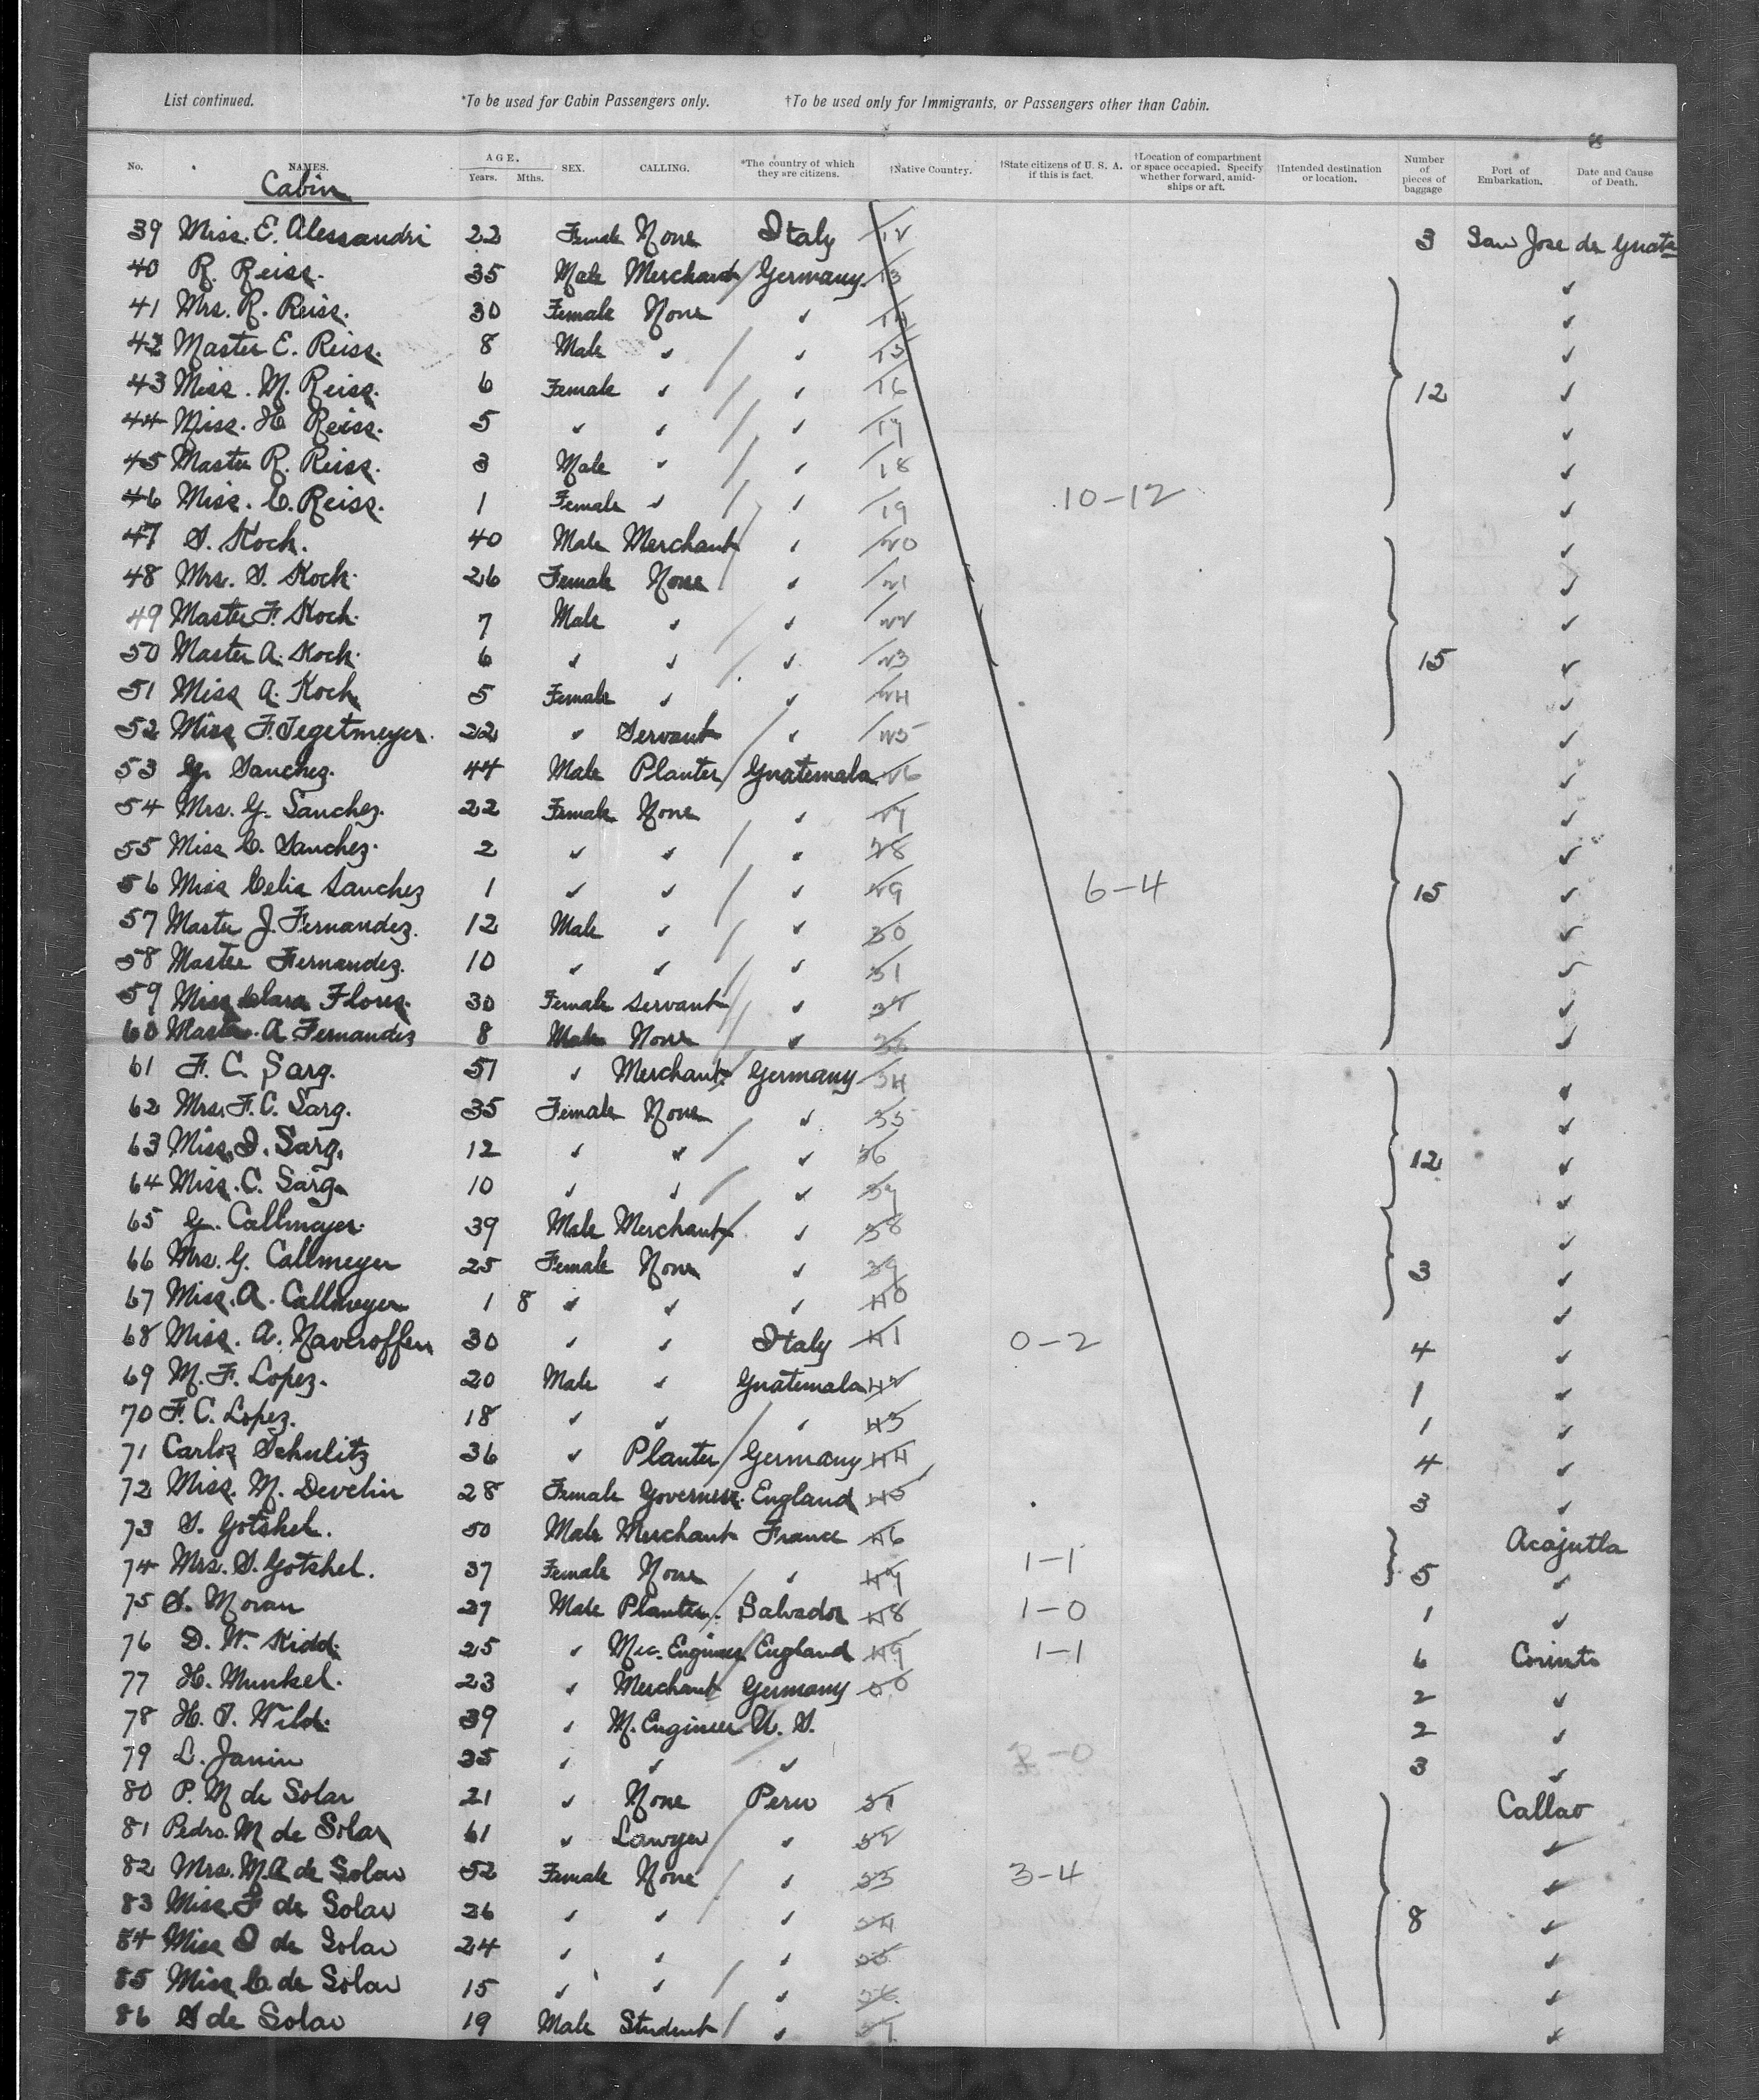 List continued. *To be used for Cabin Passengers only. †To be used only for Immigrants, or Passengers other than Cabin.
No. NAMES. AGE. Years. Mths. SEX. CALLING. *The country of which they are citizens. †Native Country. †State citizens of U. S. A. if this is fact. †Location of compartment or space occupied. Specify whether forward, amidships or aft. †Intended destination or location. Number of pieces of baggage Port of Embarkation. Date and Cause of Death.
Cabin
39 Miss. E. Alessandri 22 Female None Italy 12 3 San Jose de Guate
40 R. Reiss. 35 Male Merchant Germany 13 ✓
41 Mrs. R. Reiss. 30 Female None ✓ 14 ✓
42 Master E. Reiss. 8 Male ✓ ✓ 15 ✓
43 Miss. M. Reiss. 6 Female ✓ ✓ 16 12 ✓
44 Miss. H Reiss. 5 ✓ ✓ ✓ 17 ✓
45 Master R. Reiss. 3 Male ✓ ✓ 18 ✓
46 Miss. C. Reiss. 1 Female ✓ ✓ 19 10-12 ✓
47 S. Koch. 40 Male Merchant ✓ 20 ✓
48 Mrs. S. Koch. 26 Female None ✓ 21 ✓
49 Master F. Koch. 7 Male ✓ ✓ 22 ✓
50 Master A. Koch. 6 ✓ ✓ ✓ 23 15 ✓
51 Miss A. Koch 5 Female ✓ ✓ 24 ✓
52 Miss F. Tegetmeyer. 22 ✓ Servant ✓ 25 ✓
53 G. Sanchez. 44 Male Planter Guatemala 26 ✓
54 Mrs. G. Sanchez. 22 Female None ✓ 27 ✓
55 Miss C. Sanchez. 2 ✓ ✓ ✓ 28 ✓
56 Miss Celia Sanchez 1 ✓ ✓ ✓ 29 6-4 15 ✓
57 Master J. Fernandez. 12 Male ✓ ✓ 30 ✓
58 Master Fernandez. 10 ✓ ✓ ✓ 31 ✓
59 Miss Clara Flores. 30 Female Servant ✓ 32 ✓
60 Master. A Fernandez 8 Male None ✓ 33 ✓
61 F. C. Sarg. 51 ✓ Merchant Germany 34 ✓
62 Mrs. F. C. Sarg. 35 Female None ✓ 35 ✓
63 Miss. I. Sarg. 12 ✓ ✓ ✓ 36 12 ✓
64 Miss. C. Sarg. 10 ✓ ✓ ✓ 37 ✓
65 G. Callmeyer. 39 Male Merchant ✓ 38 ✓
66 Mrs. G. Callmeyer 25 Female None ✓ 39 3 ✓
67 Miss. A. Callmeyer 1 8 ✓ ✓ ✓ 40 ✓
68 Miss. A. 30 ✓ ✓ Italy 41 0-2 4 ✓
69 M. F. Lopez. 20 Male ✓ Guatemala 42 1 ✓
70 F. C. Lopez. 18 ✓ ✓ ✓ 43 1 ✓
71 Carlos Schulitz 36 ✓ Planter Germany 44 4 ✓
72 Miss. M. Develin 28 Female Governess. England 45 3 ✓
73 S. Gotshel. 50 Male Merchant France 46 Acajutla
74 Mrs. S. Gotshel. 37 Female None ✓ 47 1-1 5 ✓
75 S. Moran 27 Male Planter. Salvador 48 1-0 1 ✓
76 D. W. Kidd. 25 ✓ Mec. Engineer England 49 1-1 6 Corinto
77 H. Munkel. 23 ✓ Merchant Germany 50 2 ✓
78 H. T. Wild. 39 ✓ M. Engineer U. S. 2 ✓
79 L. Janin 35 ✓ ✓ ✓ 3 ✓
80 P. M de Solar 21 ✓ None Peru 51 Callao
81 Pedro. M de Solar 61 ✓ Lawyer ✓ 52 ✓
82 Mrs. M. A de Solar 52 Female None ✓ 53 3-4 ✓
83 Miss. F de Solar 26 ✓ ✓ ✓ 54 8 ✓
84 Miss I de Solar 24 ✓ ✓ ✓ 55 ✓
85 Miss C. de Solar 15 ✓ ✓ ✓ 56 ✓
86 S de Solar 19 Male Student ✓ 57 ✓